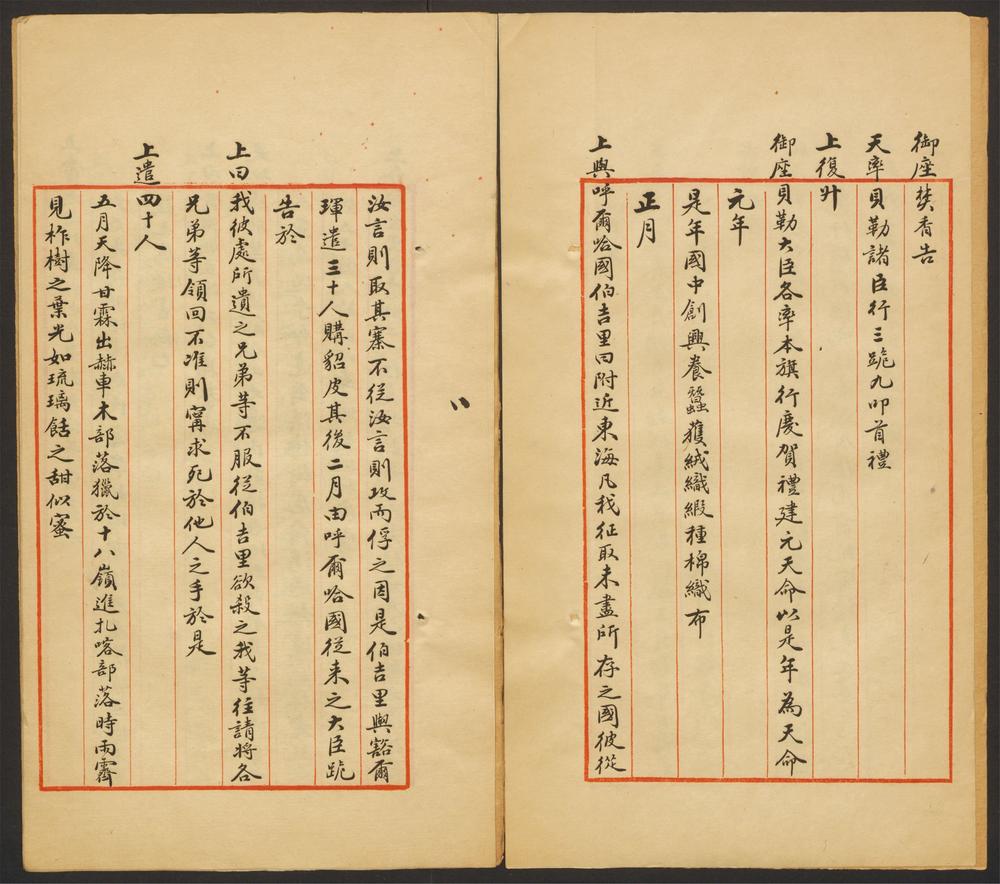 御座焚香告
天率貝勒諸臣行三跪九叩首禮
上復升
御座貝勒大臣各率本旗行慶賀禮建元天命以是年為天命
元年
是年國中創興養蠶獲絨織緞種棉織布
正月
上與呼爾哈國伯吉里曰附近東海凡我征取未盡所存之國彼從
汝言則取其寨不從汝言則攻而俘之因是伯吉里與豁爾
琿遣三十人購貂皮其後二月由呼爾哈國從来之大臣跪
告於
上曰我彼處所遺之兄弟等不服從伯吉里欲殺之我等往請將各
兄弟等領回不准則寧求死於他人之手於是
上遣四十人
五月天降甘霖出赫車木部落獵於十八嶺進扎喀部落時雨霽
見柞樹之葉光如琉璃餂之甜似蜜